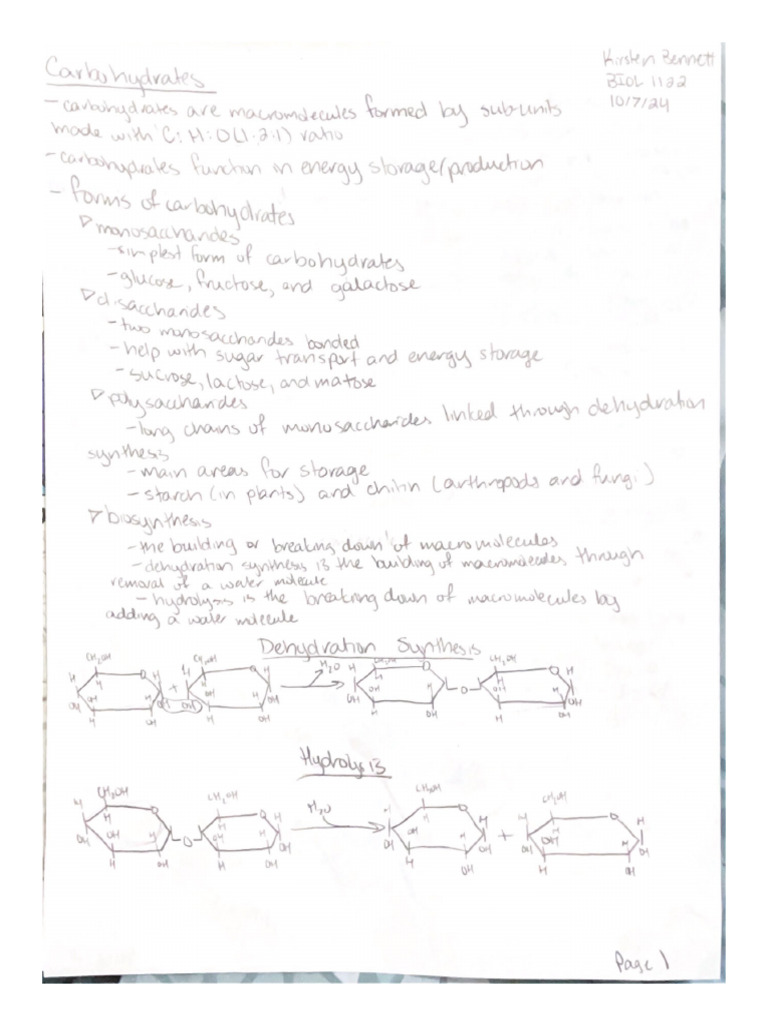 Carbohydrates
Kirsten Bennett
BIOL 1122
10/7/24
- carbohydrates are macromolecules formed by subunits
made with C:H:O (1:2:1) ratio
- carbohydrates function in energy storage/production
- forms of carbohydrates
▽ monosaccharides
- simplest form of carbohydrates
- glucose, fructose, and galactose
▽ disaccharides
- two monosaccharides bonded
- help with sugar transport and energy storage
- sucrose, lactose, and matose
▽ polysaccharides
- long chains of monosaccharides linked through dehydration
synthesis
- main areas for storage
- starch (in plants) and chitin (arthropods and fungi)
▽ biosynthesis
- the building or breaking down of macromolecules
- dehydration synthesis is the building of macromolecules through
removal of a water molecule
- hydrolysis is the breaking down of macromolecules by
adding a water molecule
Dehydration Synthesis
CH2OH CH2OH H2O CH2OH CH2OH
H O H H O H H O O H
OH H + OH H OH H OH H
OH OH OH OH OH O OH
H OH H OH H OH H OH
Hydrolysis
CH2OH CH2OH H2O CH2OH CH2OH
H O O H H O H H O H
OH H H H OH H + OH H
OH O OH OH OH OH OH
H OH H OH H OH H OH
Page 1